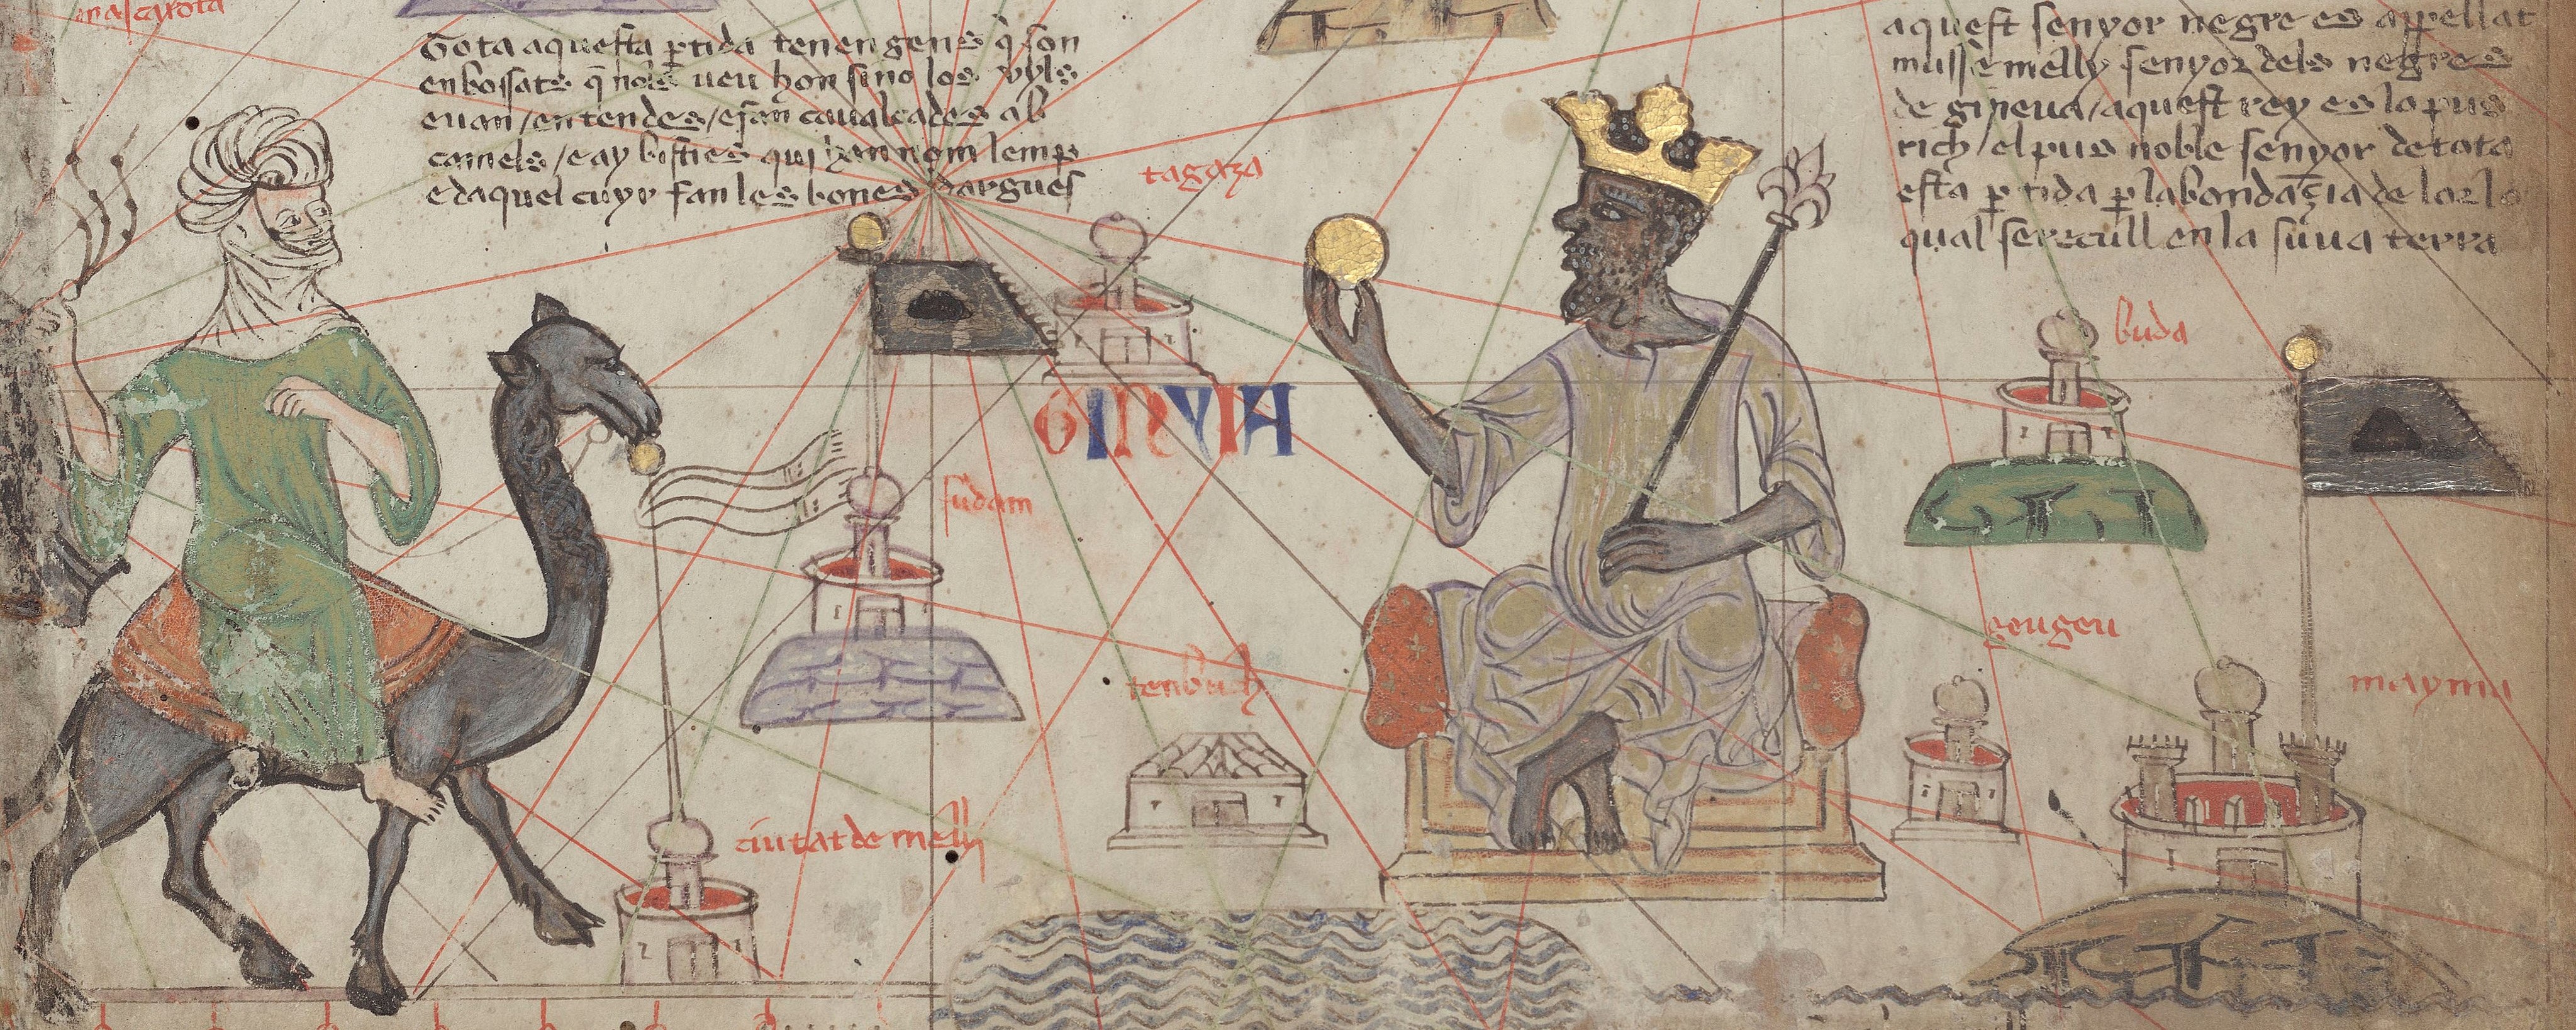 Tota aquesta ptida tenen gens q̄ son
enbossats q̄ nols veu hom sino los uyls
e uan / en tendes / e fan caualcades ab
camels / e ay bisties qui han nom lemp
e daquel cuyr fan les bones dargues
aquest senyor negre es appellat
musse melly senyor dels negres
de gineua / aquest rey es lo pus
rich / el pus noble senyor de tota
esta ptida p labondaçia de lor lo
qual se recull en la suua terra
tagaza
buda
GINYIA
sudam
geugeu
tenbuch
mayma
ciutat de melly